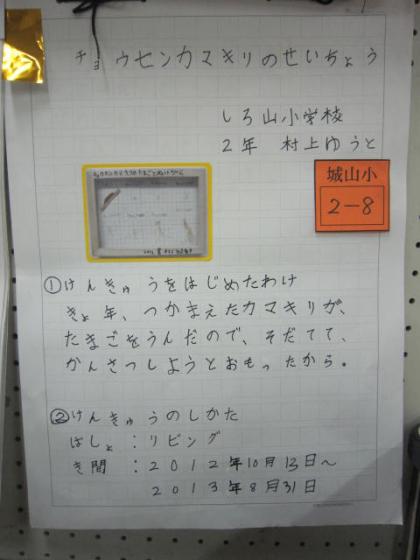 チョウセンカマキリのせいちょう
しろ山小学校
2年 村上ゆうと
城山小
2-8
①けんきゅうをはじめたわけ
きょ年、つかまえたカマキリが、
たまごをうんだので、そだてて、
かんさつしようとおもったから。
②けんきゅうのしかた
ばしょ:リビング
き間:2012年10月13日~
2013年8月31日